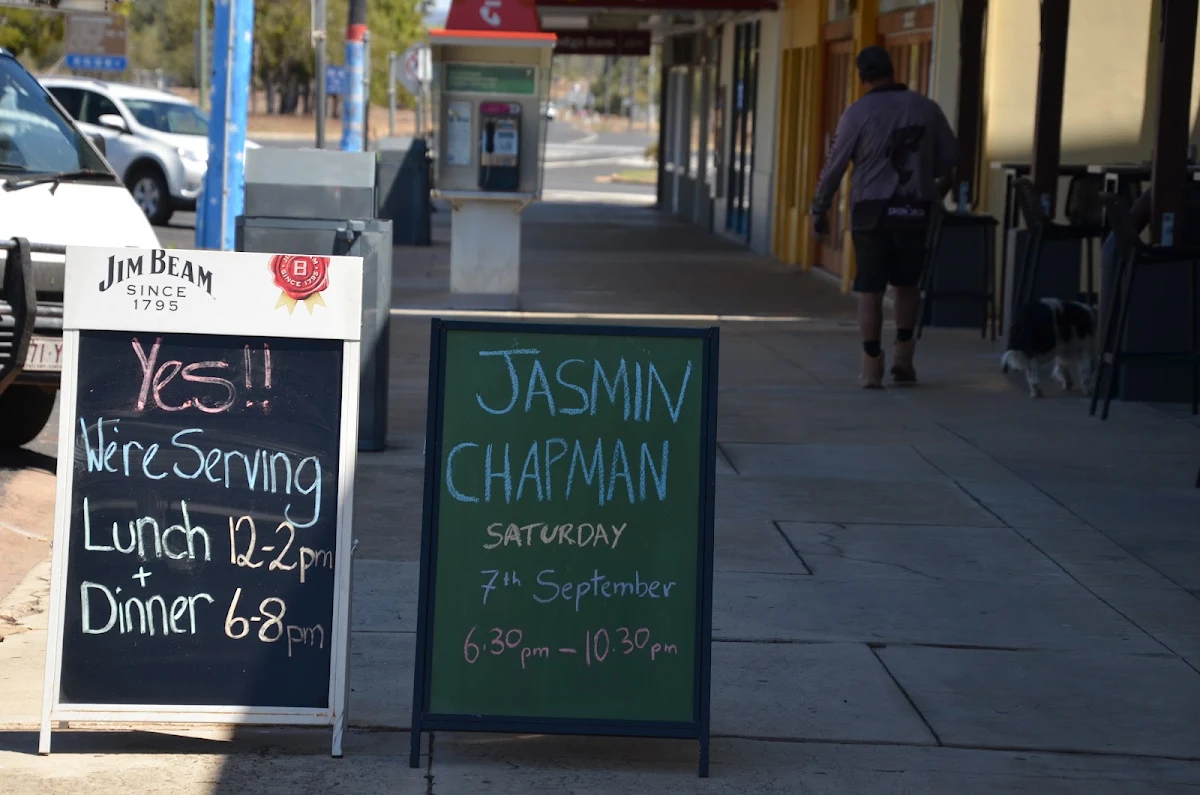 JIM BEAM
SINCE
1795
B
SINCE 1795
Yes!!
We're Serving
Lunch 12-2pm
+
Dinner 6-8pm
JASMIN
CHAPMAN
SATURDAY
7th September
6.30pm — 10.30pm